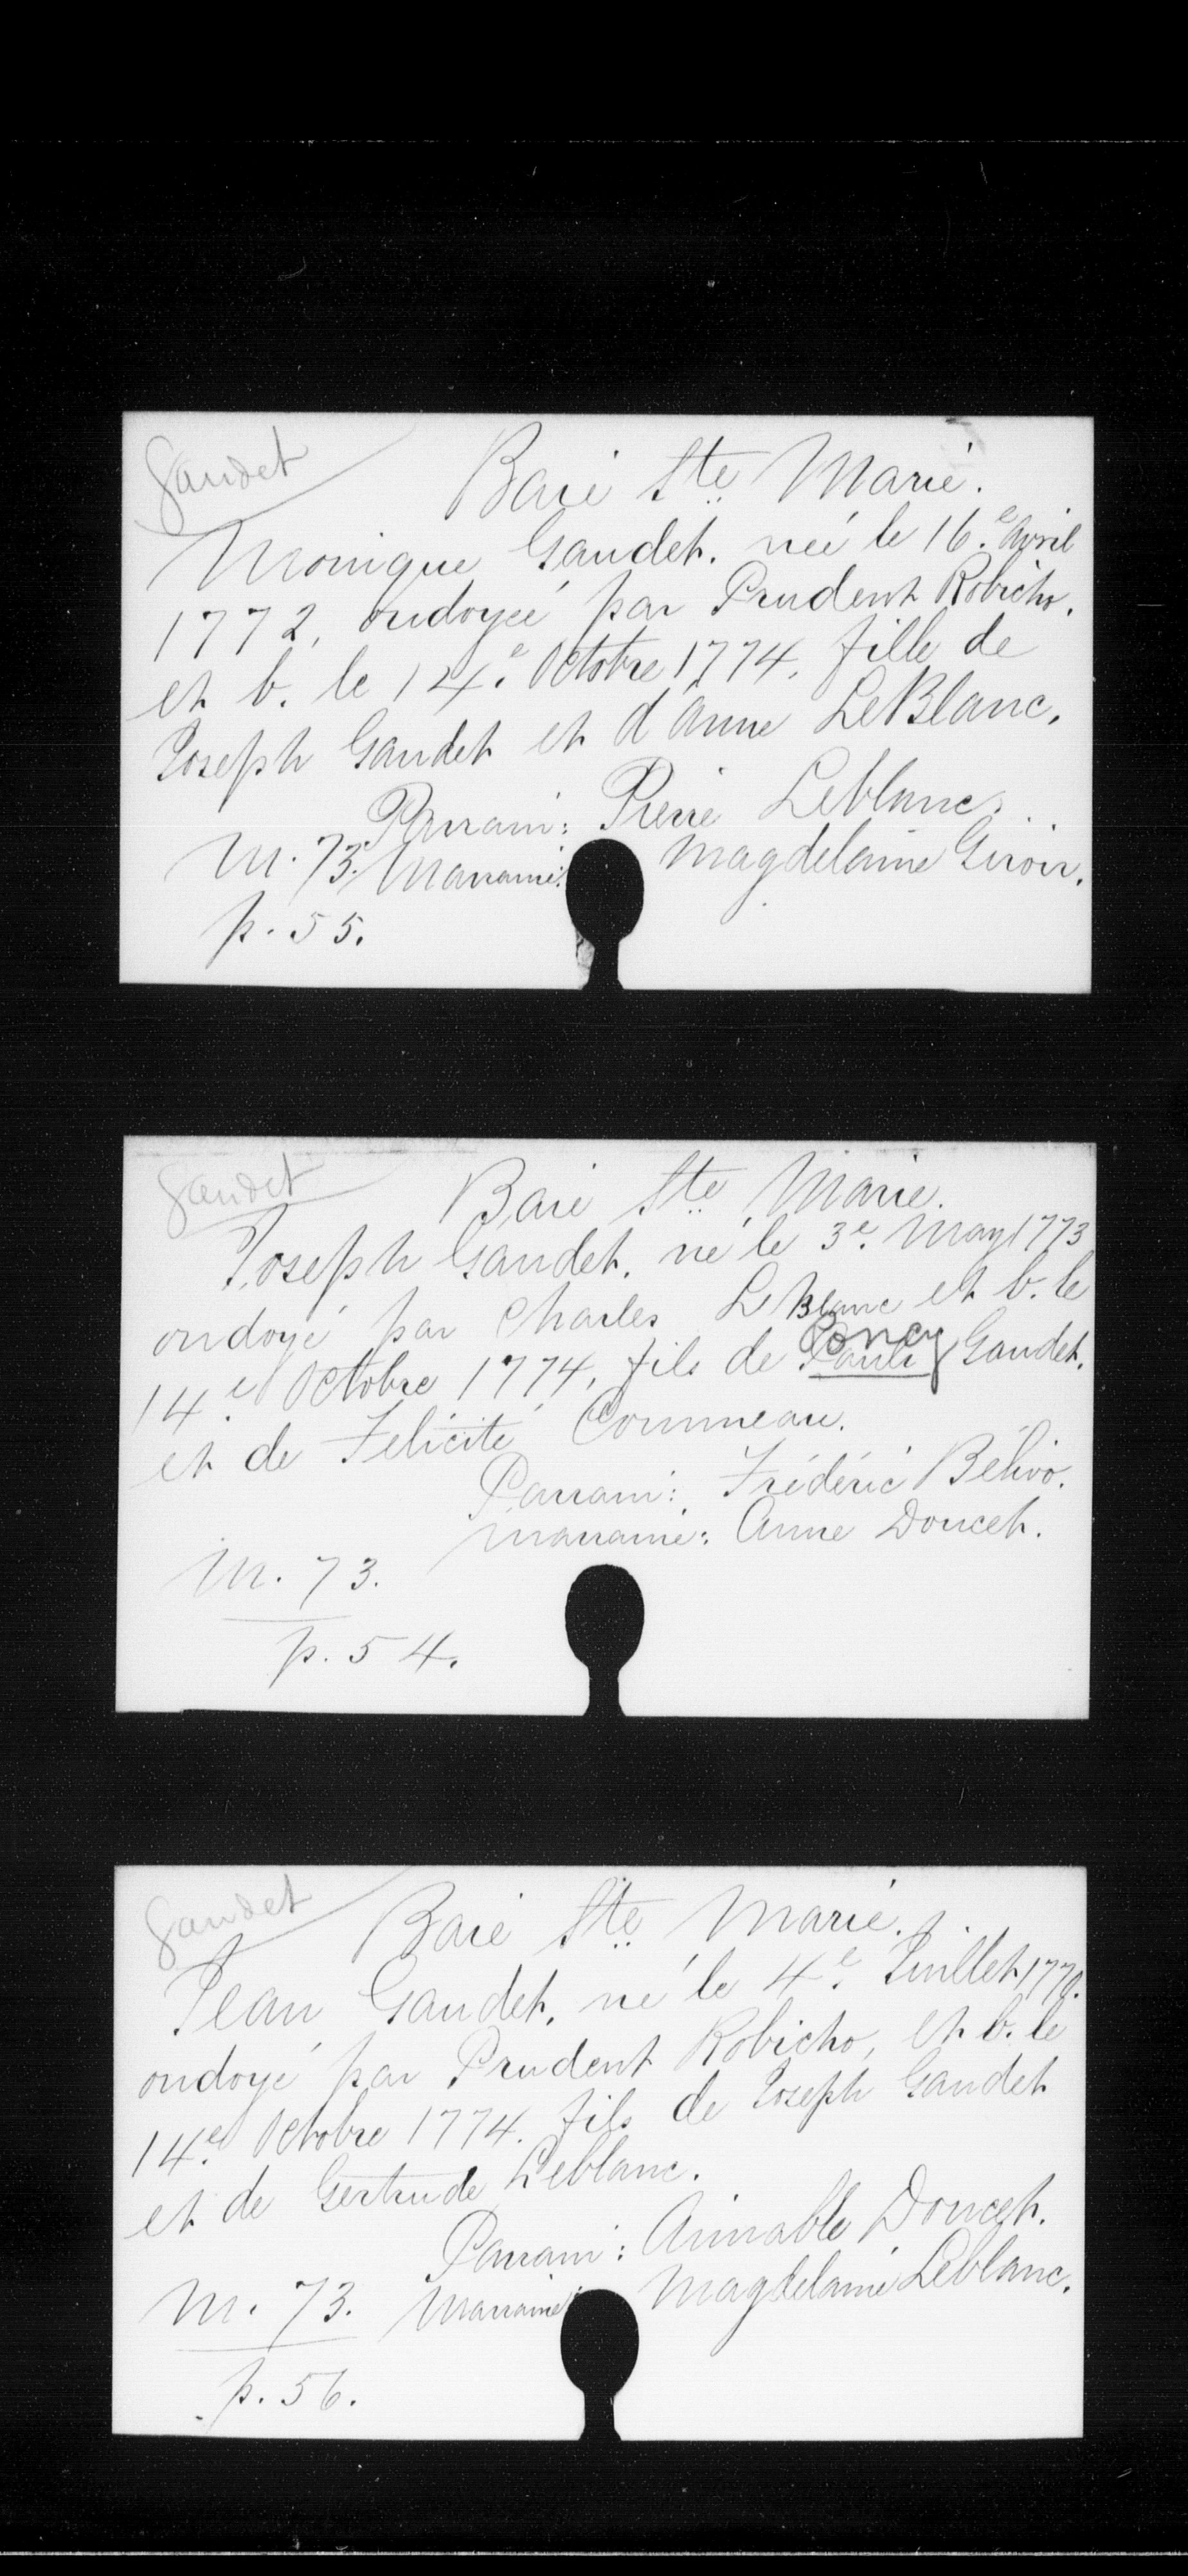 Gaudet
Baie Ste Marie.
Monique Gaudet. née le 16.e Avril
1772, ondoyée par Prudent Robicho.
et b. le 14.e Octobre 1774. fille de
Joseph Gaudet et d'Anne LeBlanc.
Parrain: Pierre Leblanc.
M. 73. Marraine: Magdelaine Giroir.
p. 55.
Gaudet
Baie Ste Marie.
Joseph Gaudet. né le 3.e May 1773
ondoyé par Charles LeBlanc et b. le
14.e Octobre 1774, fils de Gaudet.
et de Félicité Commeau.
Parrain: Frédéric Bélivo.
Marraine: Anne Doucet.
M. 73.
p. 54.
Gaudet
Baie Ste Marie.
Jean Gaudet. né le 4.e Juillet 1770.
ondoyé par Prudent Robicho, et b. le
14.e Octobre 1774. fils de Joseph Gaudet
et de Gertrude Leblanc.
Parrain: Aimable Doucet.
M. 73. Marraine Magdelaine Leblanc.
p. 56.